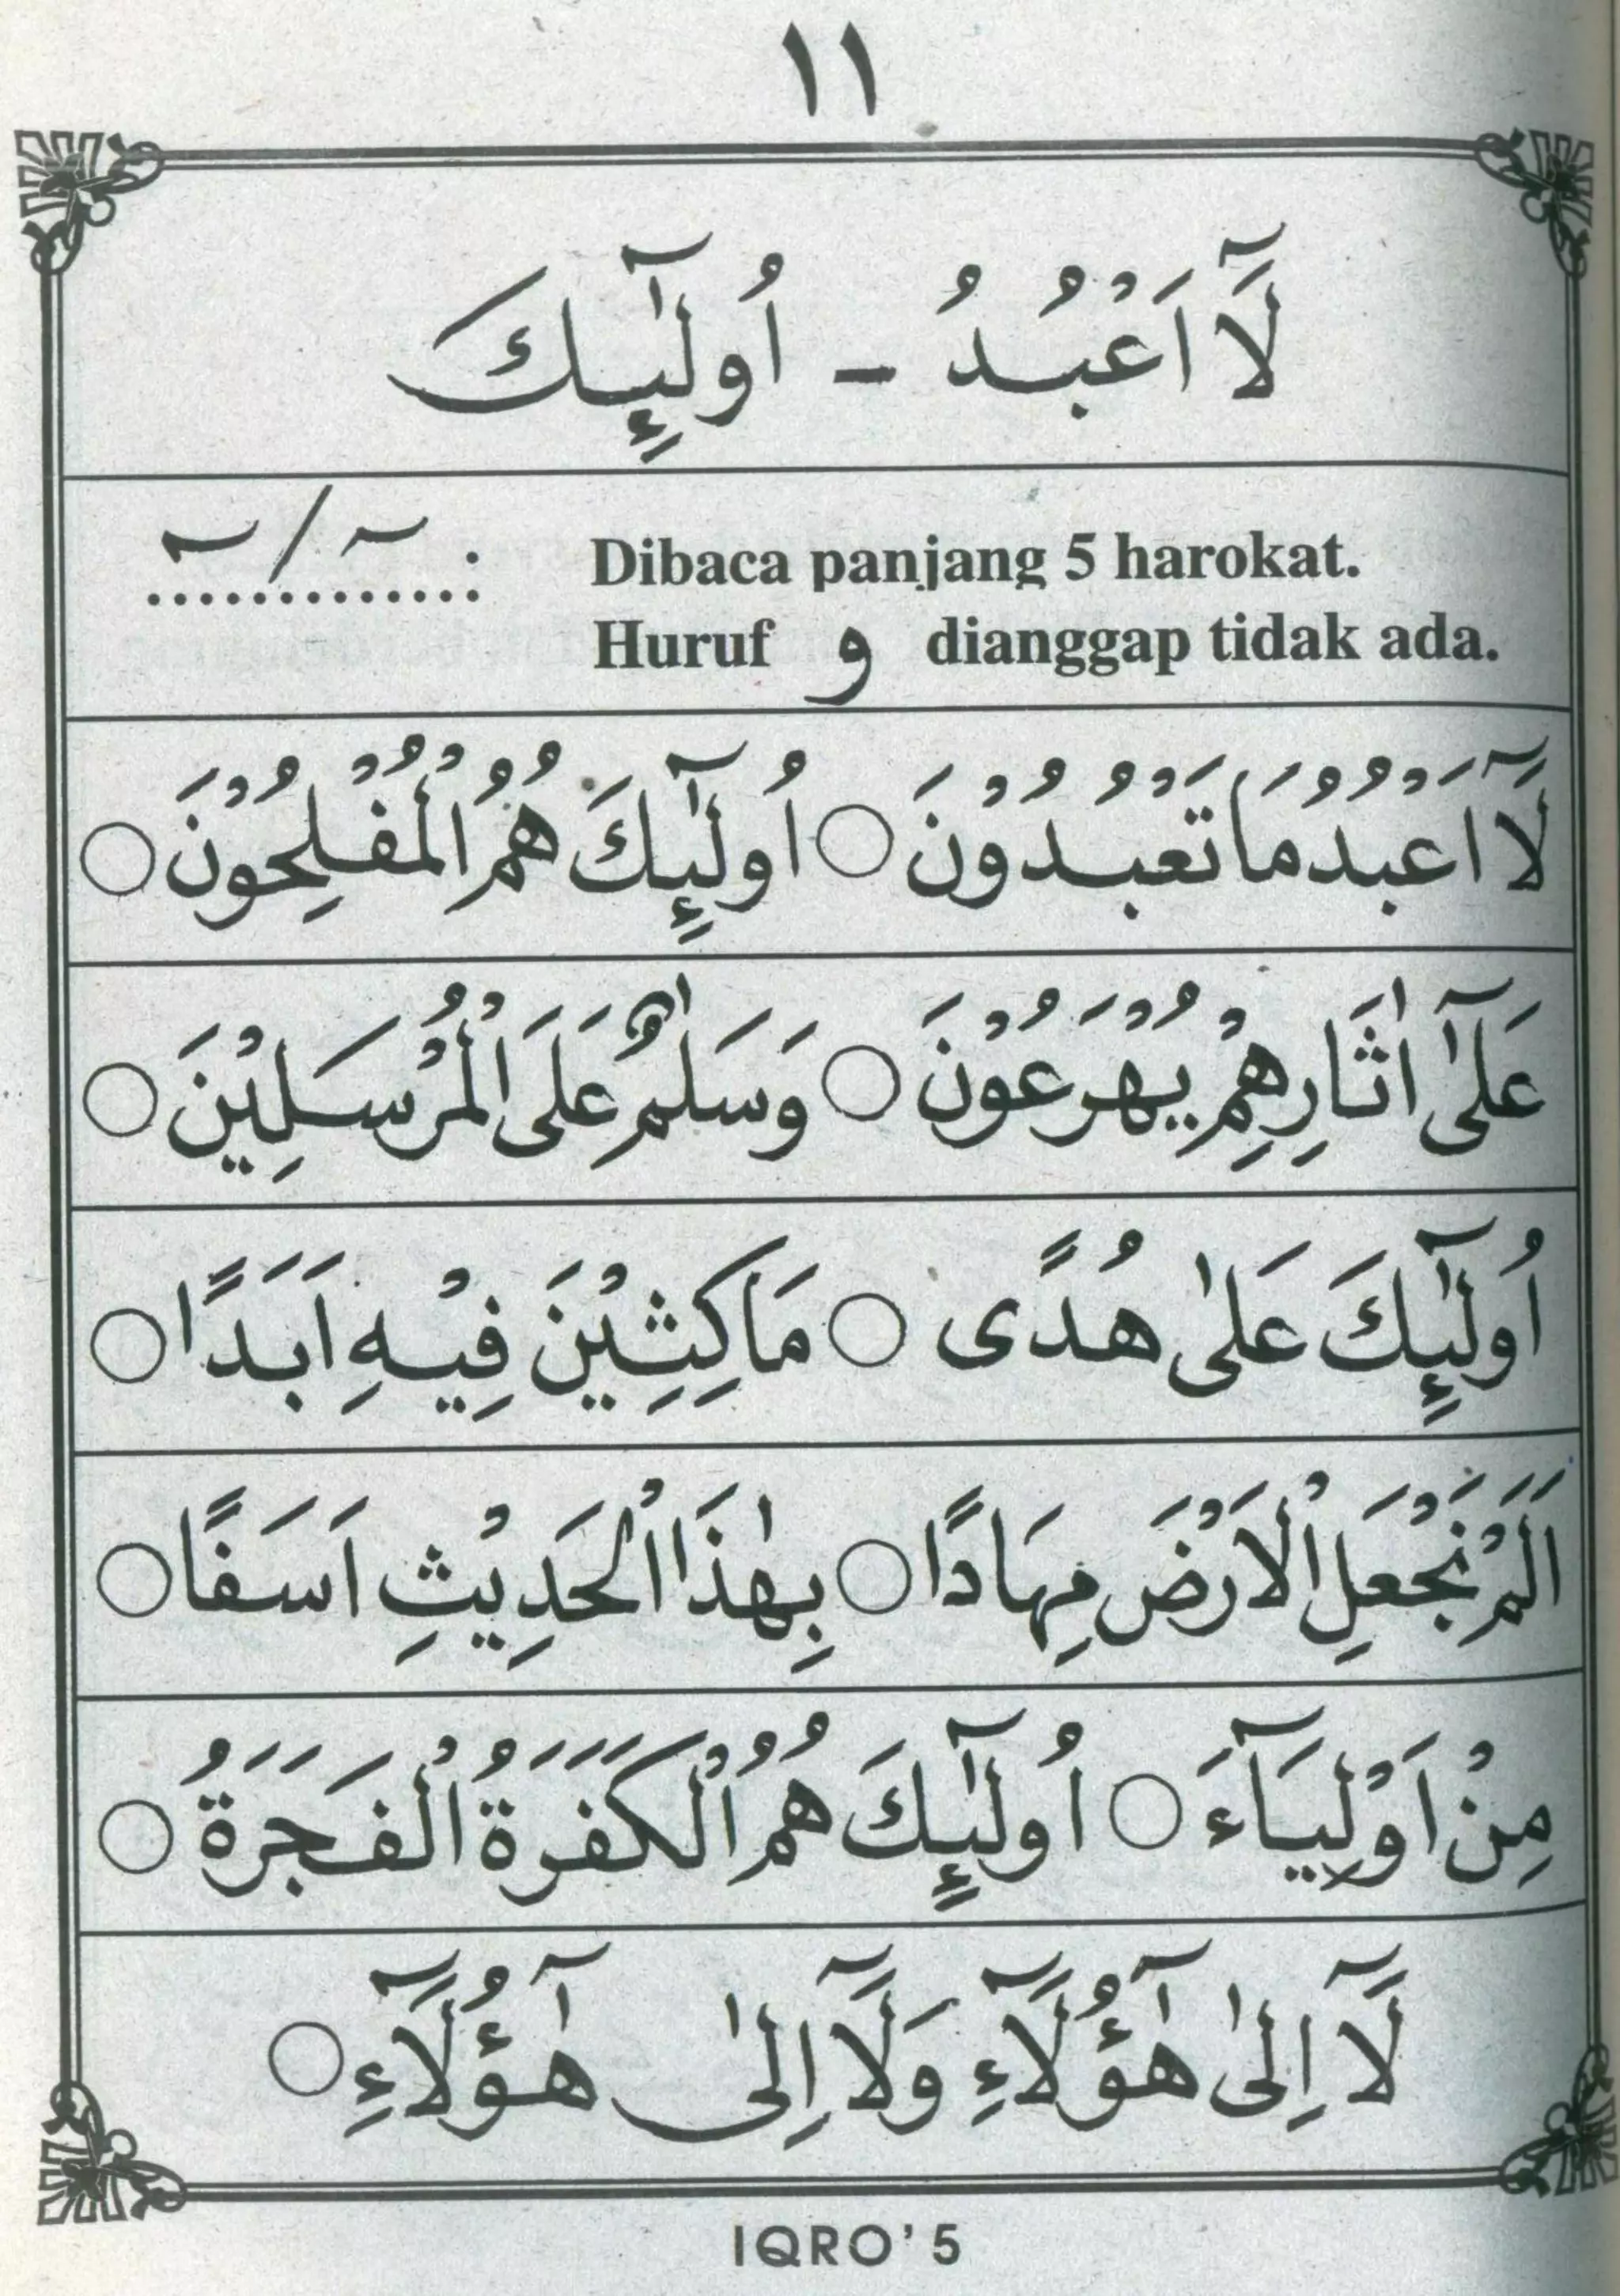 ١١
لَآ اَعْبُدُ - اُولٰٓئِكَ
...../..... : Dibaca panjang 5 harokat.
Huruf و dianggap tidak ada.
لَآ اَعْبُدُ مَا تَعْبُدُوْنَ ○ اُولٰٓئِكَ هُمُ الْمُفْلِحُوْنَ ○
عَلٰٓى اٰثَارِهِمْ يُهْرَعُوْنَ ○ وَسَلٰمٌ عَلَى الْمُرْسَلِيْنَ ○
اُولٰٓئِكَ عَلٰى هُدًى ○ مَاكِثِيْنَ فِيْهِ اَبَدًا ○
اَلَمْ نَجْعَلِ الْاَرْضَ مِهَادًا ○ بِهٰذَا الْحَدِيْثِ اَسَفًا ○
مِنْ اَوْلِيَآءَ ○ اُولٰٓئِكَ هُمُ الْكَفَرَةُ الْفَجَرَةُ ○
لَآ اِلٰى هٰٓؤُلَآءِ وَلَآ اِلٰى هٰٓؤُلَآءِ ○
IQRO' 5